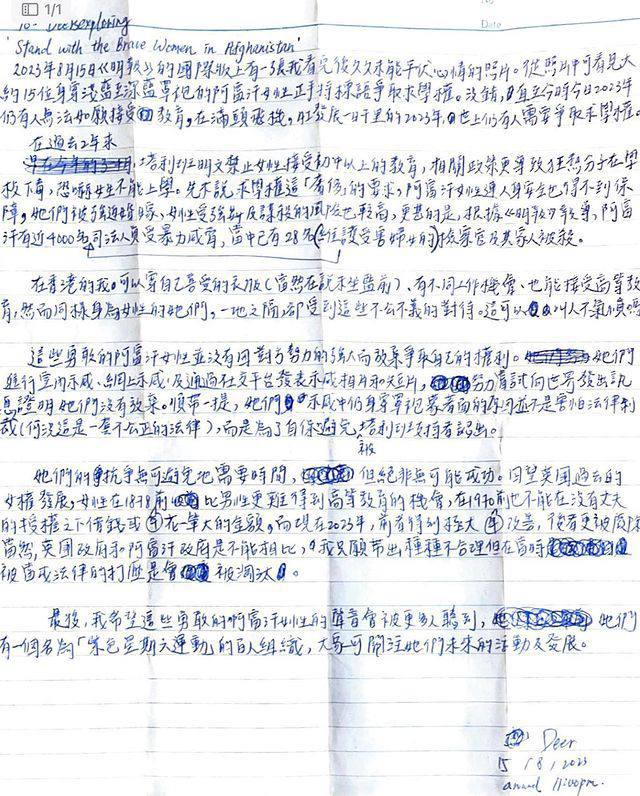 1/1
Date
To- Deersexploring
'Stand with the Brave Women in Afghanistan'
2023年8月15日《明報》的國際版上有一張我看完後久久未能平伏心情的照片。從照片中可看見大
約15位身穿淺藍至深藍罩袍的阿富汗女性正手持標語爭取求學權。沒錯,直至今時今日2023年
仍有人無法如願接受教育,在滿頭飛機,AI發展一日千里的2023年,世上仍有人需要爭取求學權。
在過去2年來
塔利班明文禁止女性接受初中以上的教育,相關政策更導致狂熱分子在學
校下毒,恐嚇女生不能上學。先不說求學權這「奢侈」的要求,阿富汗女性連人身安全也得不到保
障,她們被強迫婚嫁、女性受強姦及謀殺的風險也較高,更甚的是,根據《明報》報導,阿富
汗有近4000名司法人員受暴力威脅,當中已有28名(一位護受害婦女的)檢察官及其家人被殺。
在香港的我可以穿自己喜愛的衣服(當然在說未坐監前)、有不同工作機會、也能接受高等教
育,然而同樣身為女性的她們,一地之隔,卻受到這些不公不義的對待。這可以叫人不氣憤嗎
這些勇敢的阿富汗女性並沒有因對方勢力的強大而放棄爭取自己的權利。她們
進行室內示威、網上示威,及通過社交平台發表示威相片和短片,努力嘗試向世界發出訊
息證明她們沒有放棄。順帶一提,她們示威中仍身穿罩袍蒙著面的原因並不是害怕法律制
裁(何況這是一套不公正的法律),而是為了自保避免被塔利班支持者認出。
她們的抗爭無可避免地需要時間,但絕非無可能成功。回望英國過去的
女權發展,女性在1878前比男性更難得到高等教育的機會,在1970前也不能在沒有丈夫
的授權之下借錢或花一筆大的金額,而現在2023年,前者得到極大改善,後者更被廢除
當然,英國政府和阿富汗政府是不能相比,我只願帶出種種不合理但在當時
被當成法律的打壓是會被淘汰。
最後,我希望這些勇敢的阿富汗女性的聲音會被更多人聽到,她們
有一個名為「紫色星期六運動」的百人組織,大家可關注她們未來的活動及發展。
Deer
15/8/2023
around 11:00pm.